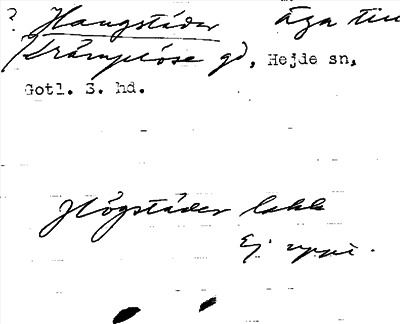 ? Haugstäder äga till
Krämplöse gd, Hejde sn,
Gotl. S. hd.
Högstäder lakk
Ej uppt.